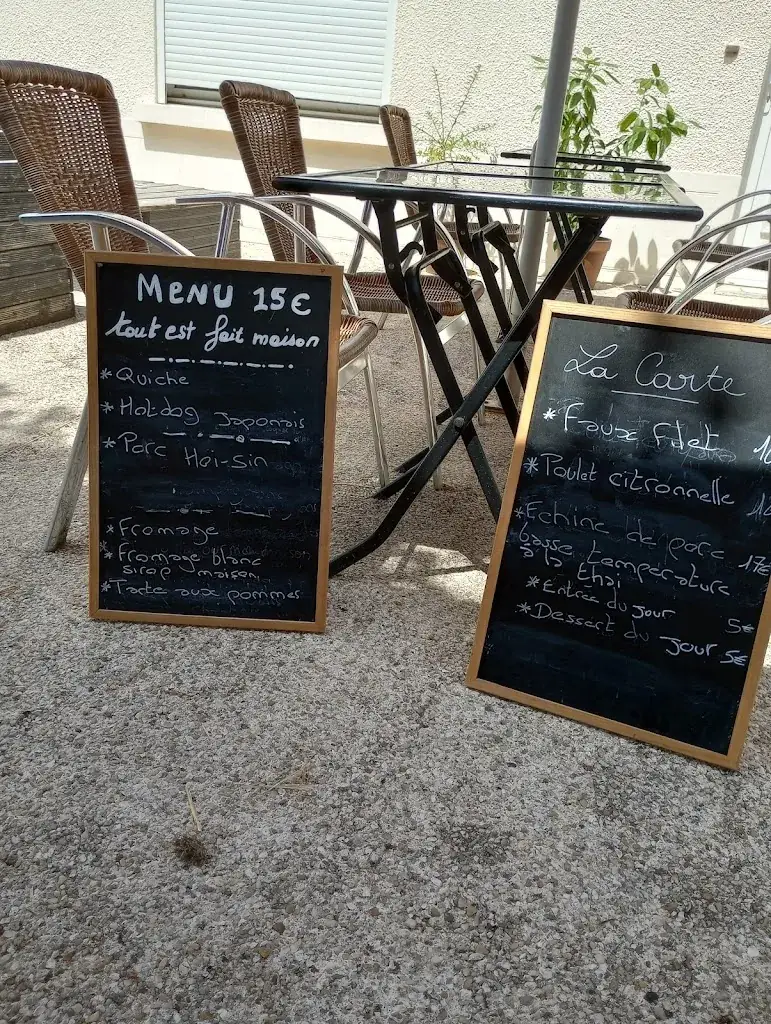 MENU 15€
tout est fait maison
*Quiche
*Hotdog Japonais
*Porc Hoi-Sin
*Fromage
*Fromage blanc
sirop maison
*Tarte aux pommes
La Carte
*Faux filet
*Poulet citronnelle
*Echine de porc 17€
basse température
à la thai
*Entrée du jour 5€
*Dessert du jour 5€